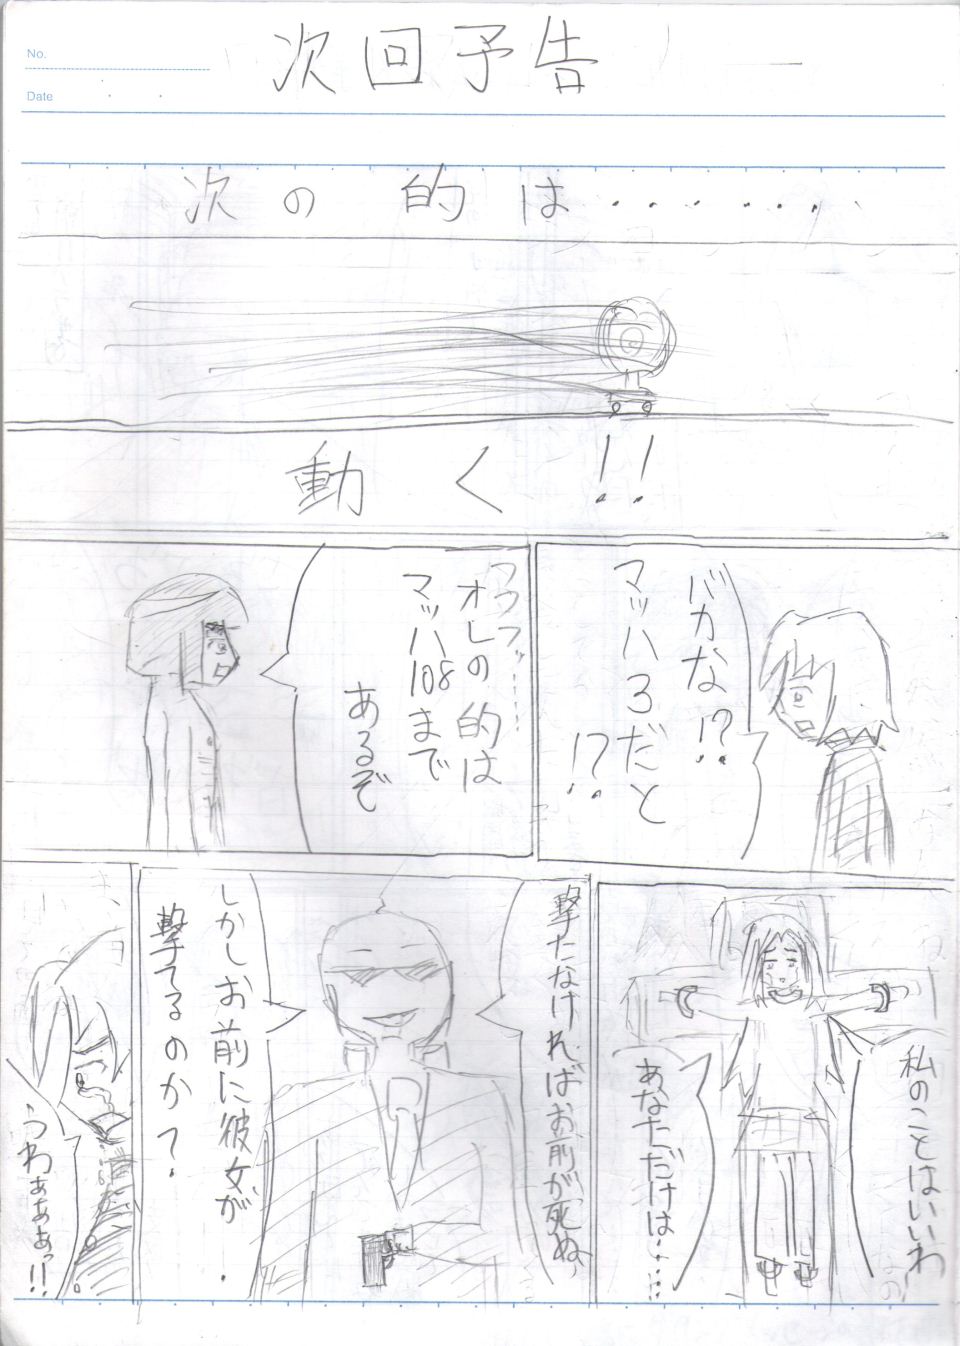 No.
Date
次回予告
次の的は・・・・・・・
動く!!
バカな!?
マッハ3だと
!?
フフフッ……
オレの的は
マッハ108まで
あるぞ
私のことはいいわ
あなただけは……
撃たなければお前が死ぬ
しかしお前に彼女が
撃てるのか?
うわぁぁぁっ!!